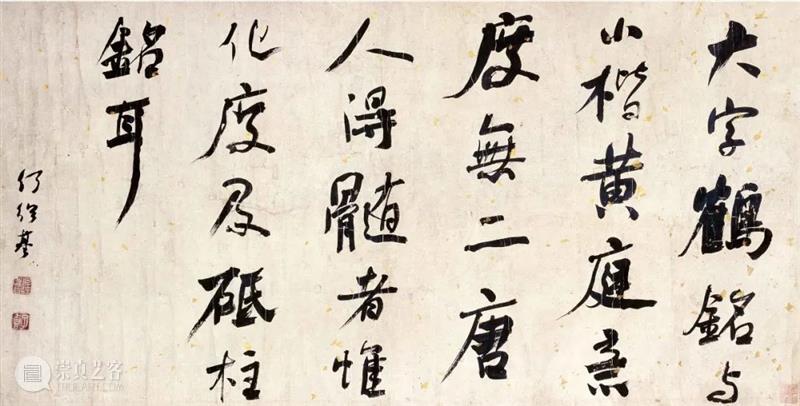 大字鶴銘与
小楷黄庭意
度無二唐
人得髓者惟
化度及砥柱
銘耳
何紹基
崇真艺客